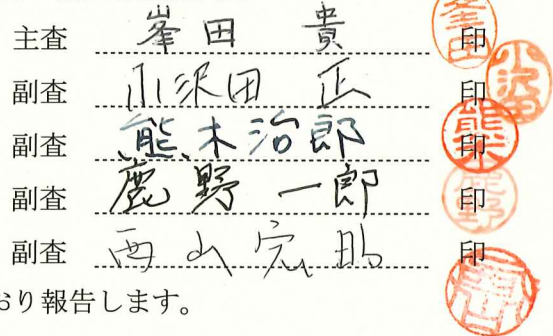 主査 峯田 貴 印
副査 小沢田 正 印
副査 熊木治郎 印
副査 鹿野一郎 印
副査 西山宏昭 印
おり報告します。